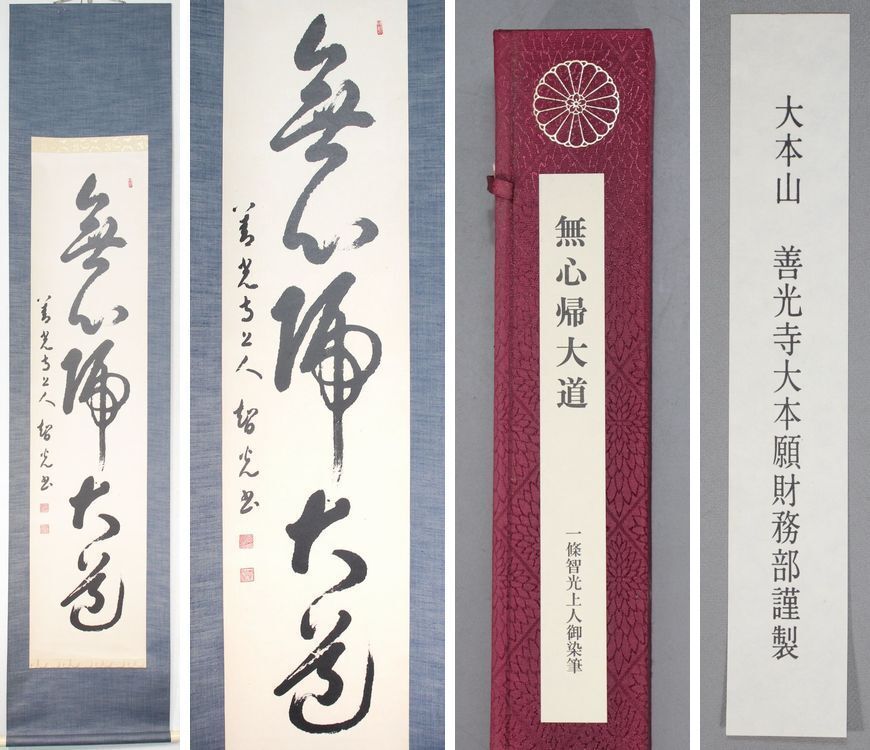 無心帰大道
善光寺上人 智光書
無心帰大道
善光寺上人 智光書
無心帰大道
一條智光上人御染筆
大本山 善光寺大本願財務部謹製